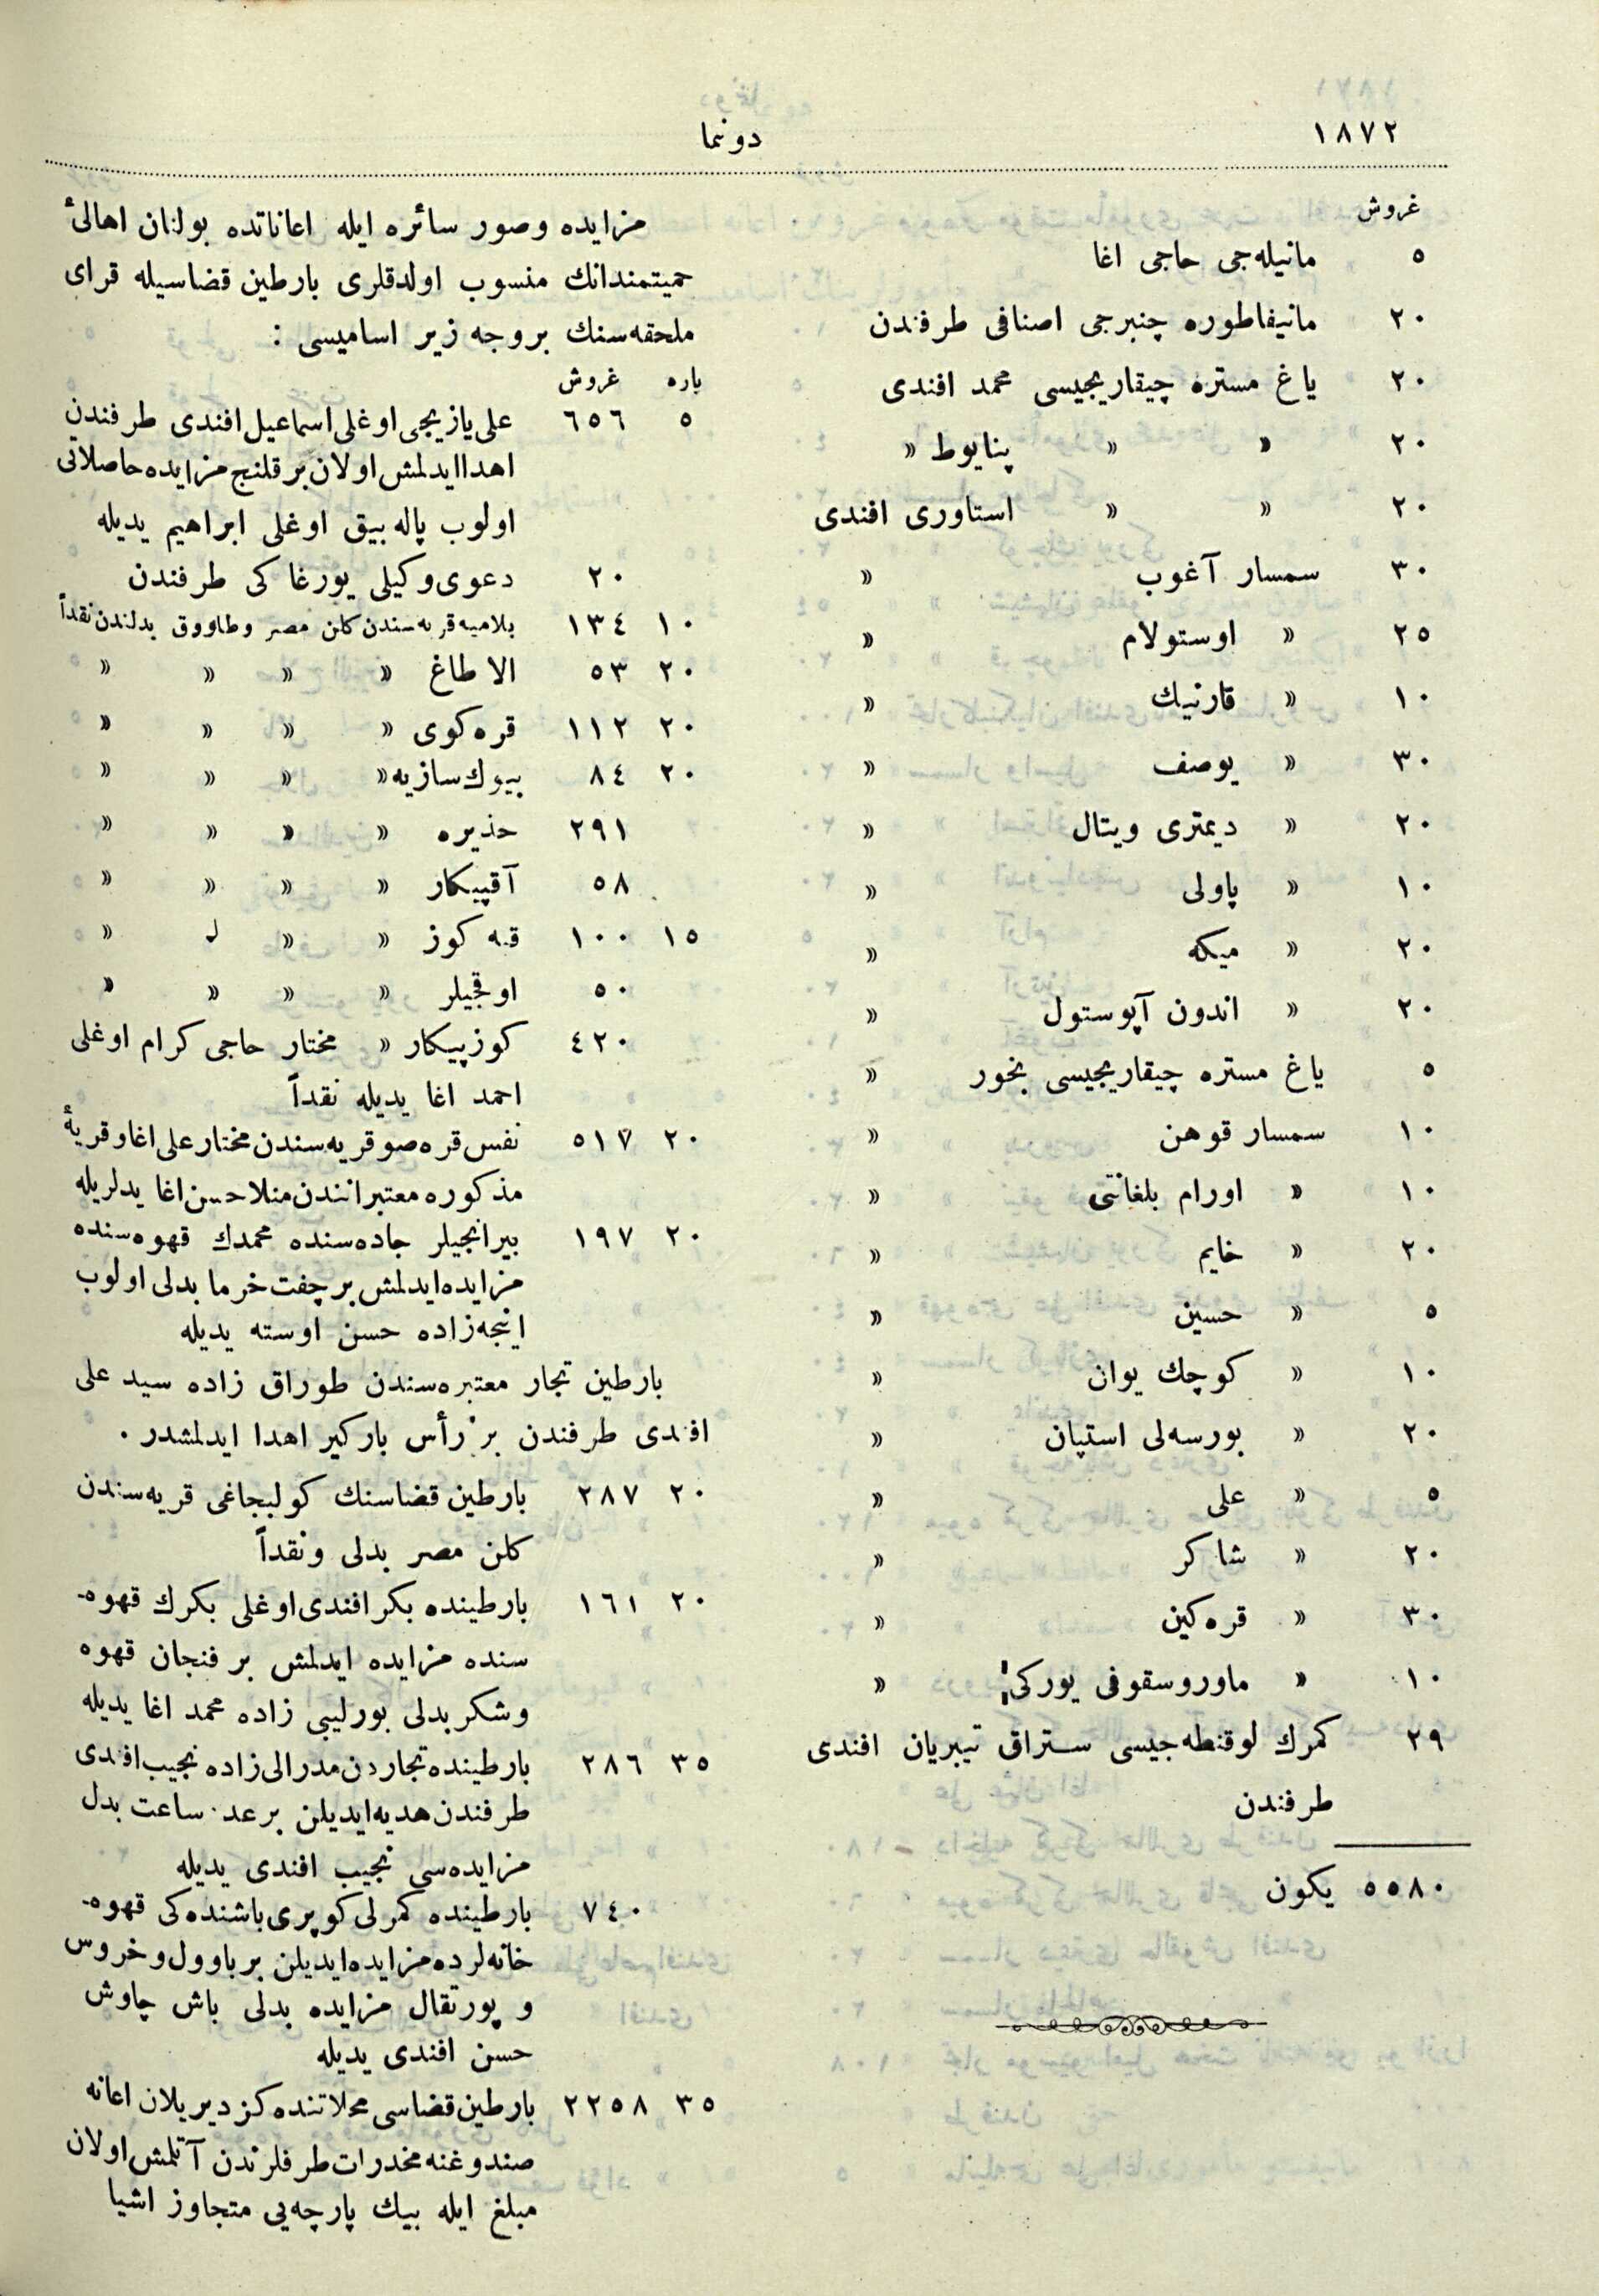 ١٨٧٢
دونما
غروش
٥ مانیله‌جی حاجی اغا
٢٠ مانیفاطوره چنبرجی اصنافی طرفندن
٢٠ یاغ مستره چیقاریجیسی محمد افندی
٢٠ « « پنایوط «
٢٠ « « استاوری افندی
٣٠ سمسار آغوب «
٢٥ « اوستولام «
١٠ « قارنیك «
٣٠ « یوصف «
٢٠ « دیمتری ویتال «
١٠ « پاولی «
٢٠ « میكه «
٢٠ « اندون آپوستول «
٥ یاغ مستره چیقاریجیسی نخور «
١٠ سمسار قوهن «
١٠ « اورام بلغانتی «
٢٠ « خایم «
٥ « حسین «
١٠ « كوچك یوان «
٢٠ « بورسه‌لی استپان «
٥ « علی «
٢٠ « شاكر «
٣٠ « قره‌كین «
١٠ « ماوروسقوفی یوركی «
٢٩ كمرك لوقنطه‌جیسی ستراق تیبریان افندی
طرفندن
٥٥٨٠ یكون
مزایده وصور سائره ایله اعاناتده بولنان اهالیٔ
حمیتمندانك منسوب اولدقلری بارطین قضاسیله قرای
ملحقه‌سنك بروجه زیر اسامیسی :
پاره غروش
٥ ٦٥٦ علی یازیجی اوغلی اسماعیل افندی طرفندن
اهدا ایدلمش اولان بر قلنج مزایده حاصلاتی
اولوب پاله بیق اوغلی ابراهیم یدیله
٢٠ دعوی وكیلی یورغاكی طرفندن
١٠ ١٣٤ بلامیه قریه‌سندن كلن مصر وطاووق بدلندن نقداً
٢٠ ٥٣ الا طاغ « « « «
٢٠ ١١٢ قره كوی « « « «
٢٠ ٨٤ بیوك سازیه « « « «
٢٩١ حذیره « « « «
٥٨ آقپیكار « « « «
١٥ ١٠٠ قبه كوز « « « «
٥٠ اوقجیلر « « « «
٤٢٠ كوزپیكار « مختار حاجی كرام اوغلی
احمد اغا یدیله نقداً
٢٠ ٥١٧ نفس قره صو قریه‌سندن مختار علی اغا وقریهٔ
مذكوره معتبرانندن منلا حسن اغا یدلریله
٢٠ ١٩٧ بیرانجیلر جاده‌سنده محمدك قهوه‌سنده
مزایده ایدلمش بر چفت خرما بدلی اولوب
اینجه‌زاده حسن اوسته یدیله
بارطین تجار معتبره‌سندن طوراق زاده سید علی
افندی طرفندن بر رأس باركیر اهدا ایدلمشدر .
٢٠ ٢٨٧ بارطین قضاسنك كولبجاغی قریه‌سندن
كلن مصر بدلی ونقداً
٢٠ ١٦١ بارطینده بكر افندی اوغلی بكرك قهوه-
سنده مزایده ایدلمش بر فنجان قهوه
وشكر بدلی بورلیبی زاده محمد اغا یدیله
٣٥ ٢٨٦ بارطینده تجاردن مدرالی زاده نجیب افندی
طرفندن هدیه ایدیلن بر عدد ساعت بدل
مزایده‌سی نجیب افندی یدیله
٧٤٠ بارطینده كمرلی كوپری باشنده‌كی قهوه-
خانه‌لرده مزایده ایدیلن بر باوول وخروس
وپورتقال مزایده بدلی باش چاوش
حسن افندی یدیله
٣٥ ٢٢٥٨ بارطین قضاسی محلاتنده كزدیریلان اعانه
صندوغنه مخدرات طرفلرندن آتلمش اولان
مبلغ ایله بیك پارچه‌یی متجاوز اشیا